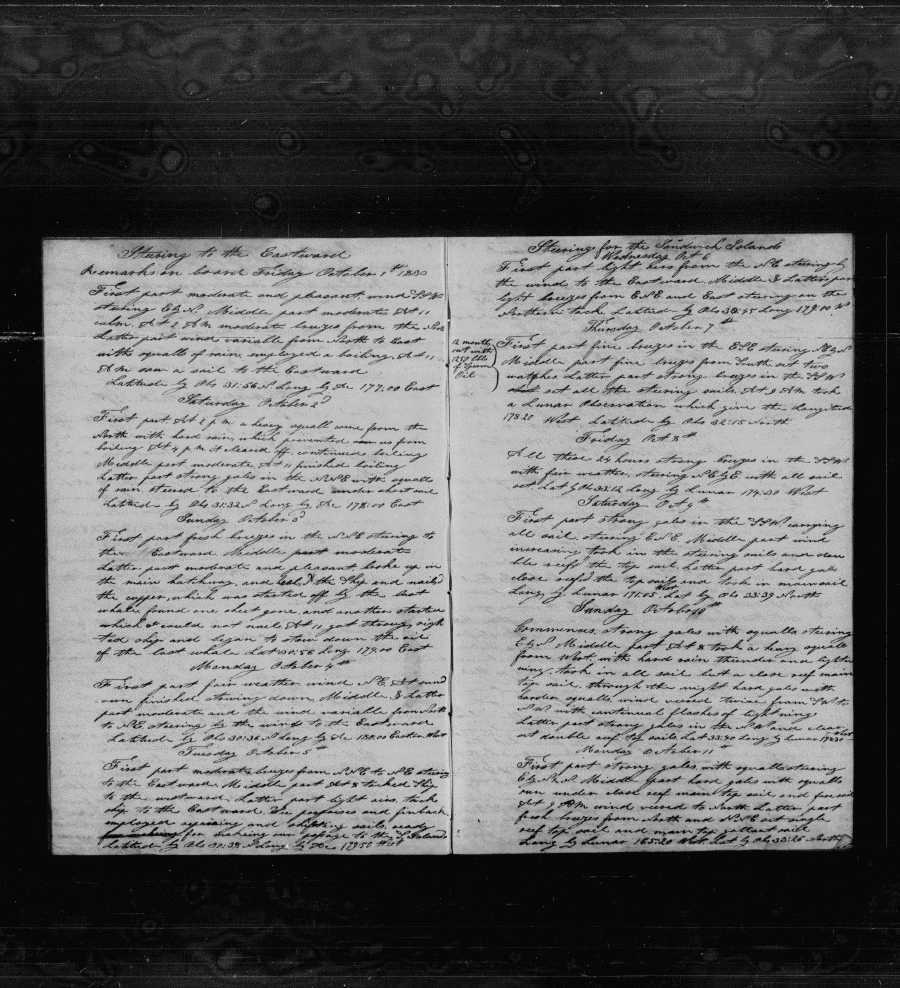 Steering to the Eastward
Remarks on board Friday October 1st 1830
First part moderate and pleasant wind SSW
steering EbyN. Middle part moderate At 11
calm. At 2 AM moderate breezes from the
Latter part wind variable from North to East
with squalls of rain employed a boiling. At 11
AM saw a sail to the Eastward
Latitude by Obs 31:56 N Long by Chr 177:20 East
Saturday October 2d
First part. At 2 PM a heavy squall came from the
North with hard rain, which prevented us from
boiling At 4 PM it cleared off. continued boiling
Middle part moderate At 11 finished boiling
Latter part strong gales in the NNE with squalls
of rain steered to the Eastward under short sail
Latitude by Obs 31:32 N Long by Chr 178:00 East
Sunday October 3d
First part fresh breezes in the NNE steering to
the Eastward Middle part moderate
Latter part moderate and pleasant, broke up in
the main hatchway, and the Ship and nailed
the copper, which was started off by the last
whale found one sheet gone, and another started
which I could not nail. At 11 got through
ted ship and began to stow down the oil
of the last whale Lat 30:56 Long 179:00 East
Monday October 4th
First part fair weather wind NE. At sund
own finished stowing down Middle & Latter
part moderate and the wind variable from North
to NE steering by the wind to the Eastward
Latitude by Obs 30:36 N Long by Chr 180:00 East or West
Tuesday October 5th
First part moderate breezes from NNE to NE steering
to the Eastward. Middle part At 8 tacked Ship
to the westward. Latter part light airs, tack
ship to the Eastward. Saw porpoises and finback
employed repairing and shifting sails, ready
for making our passage to the S Islands
Latitude by Obs 30:38 N Long by Chr 179:50 West
Steering for the Sandwich Islands
Wednesday Oct 6
First part light airs from the NE steering by
the wind to the Eastward. Middle & Latter part
light breezes from ENE and East steering on the
Northern tack. Latitude by Obs 30:45 Long 179:00 W
Thursday October 7th
12 months
out with
1250 bbls
of Sperm
Oil
First part fine breezes in the ESE steering NEbyN
Middle part fine breezes from South set two
watches Latter part strong breezes in the SSW
and set all the steering sails. At 9 AM took
a Lunar Observation which give the Longitude
178:20 West Latitude by Obs 32:15 North
Friday Oct 8th
All these 24 hours strong breezes in the SSW
with fair weather, steering NEbyE with all sail
set. Lat by Obs 33:12 Long by Lunar 174:30 West
Saturday Oct 9th
First part strong gales in the SSW carrying
all sail steering ENE Middle part wind
increasing took in the steering sails and dou
ble reeft the top sail. Latter part hard gale
close reeft the top sails and took in mainsail
Long by Lunar 171:05 West Lat by Obs 33:39 North
Sunday October 10th
Commences, strong gales with squalls steering
EbyN. Middle part At 8 took a heavy squall
from West, with hard rain thunder and lightn
ning, took in all sail but a close reef main
top sail, through the night hard gales with
harder squalls, wind veered twice from SW to
NW with continual flashes of lightning
Latter part strong gales in the NW and clear
set double reef top sails Lat 33:40 Long by Lunar West
Monday October 11th
First part strong gales with squalls steering
Middle part hard gale with squalls
run under close reef main top sail and foresail
At 9 AM wind veered to North. Latter part
fresh breezes from North and NNE set single
reef top sail and main top gallant sail
Long by Lunar 165:20 West. Lat by Obs 33:26 North